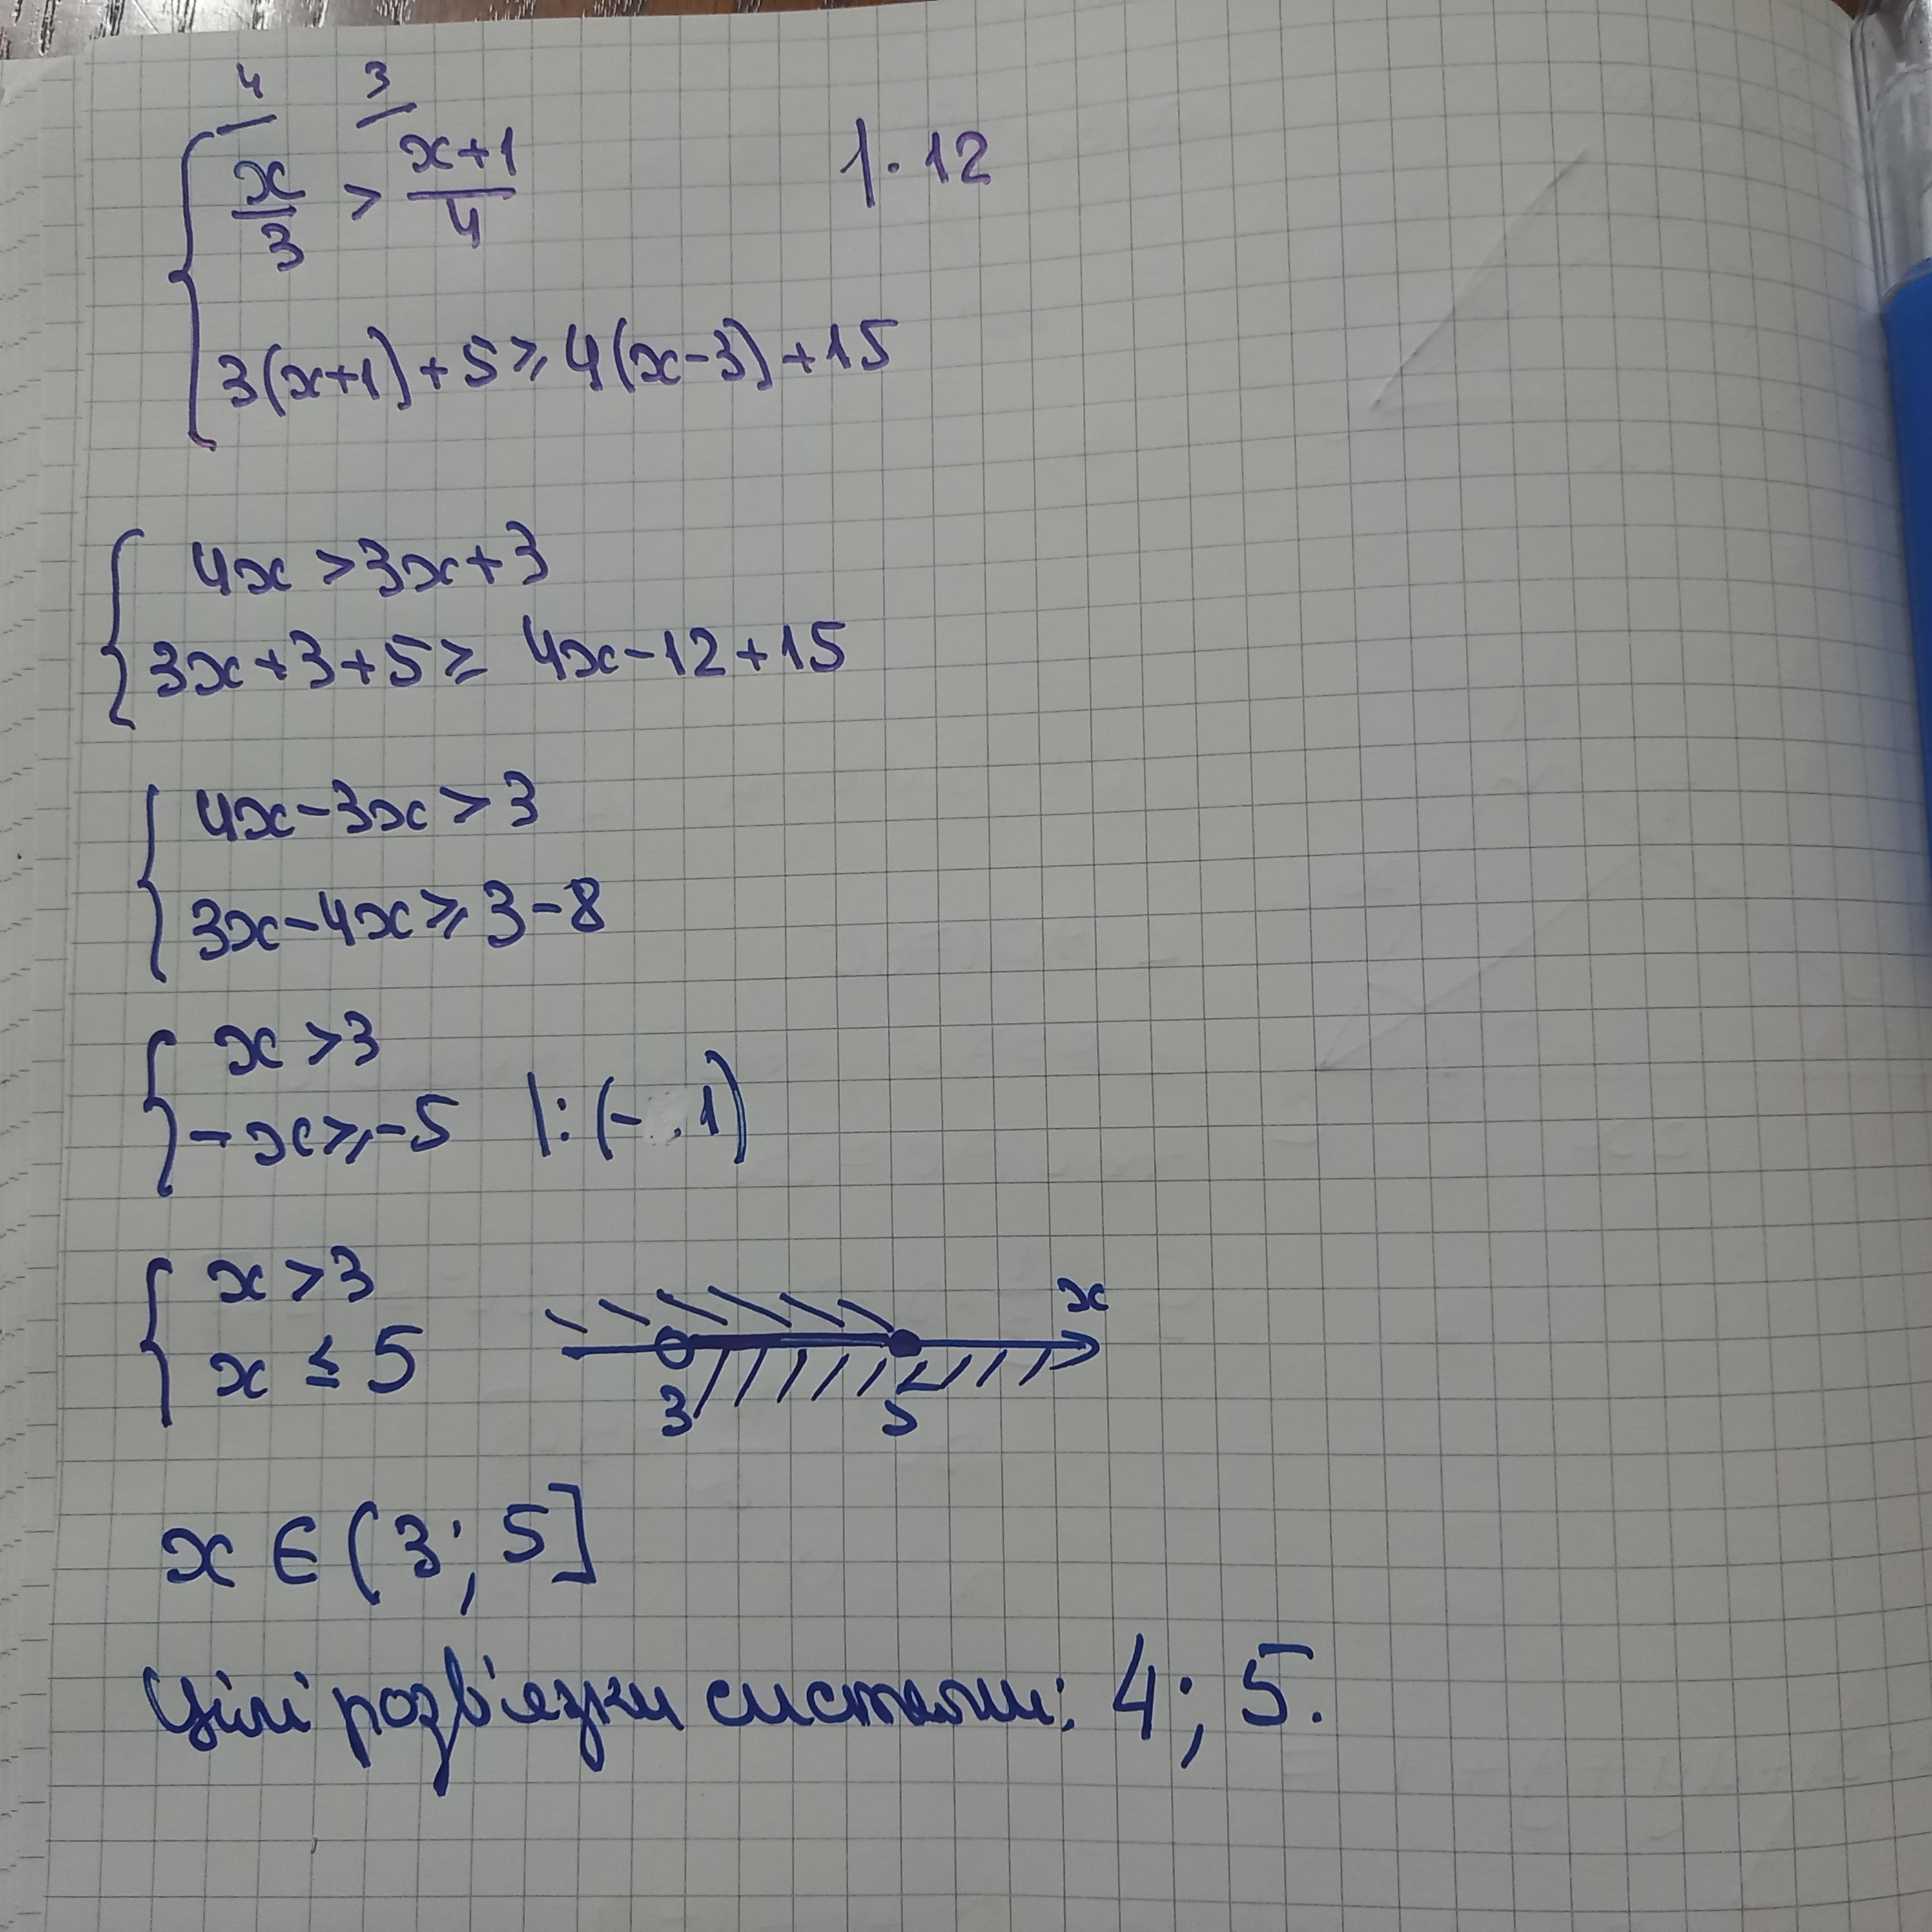 4 3
x/3 > (x+1)/4 |· 12
3(x+1)+5 ≥ 4(x-3)+15
4x > 3x+3
3x+3+5 ≥ 4x-12+15
4x-3x > 3
3x-4x ≥ 3-8
x > 3
-x ≥ -5 |:(-1)
x > 3
x ≤ 5
x
3 5
x ∈ (3; 5]
Цілі розв'язки системи: 4; 5.